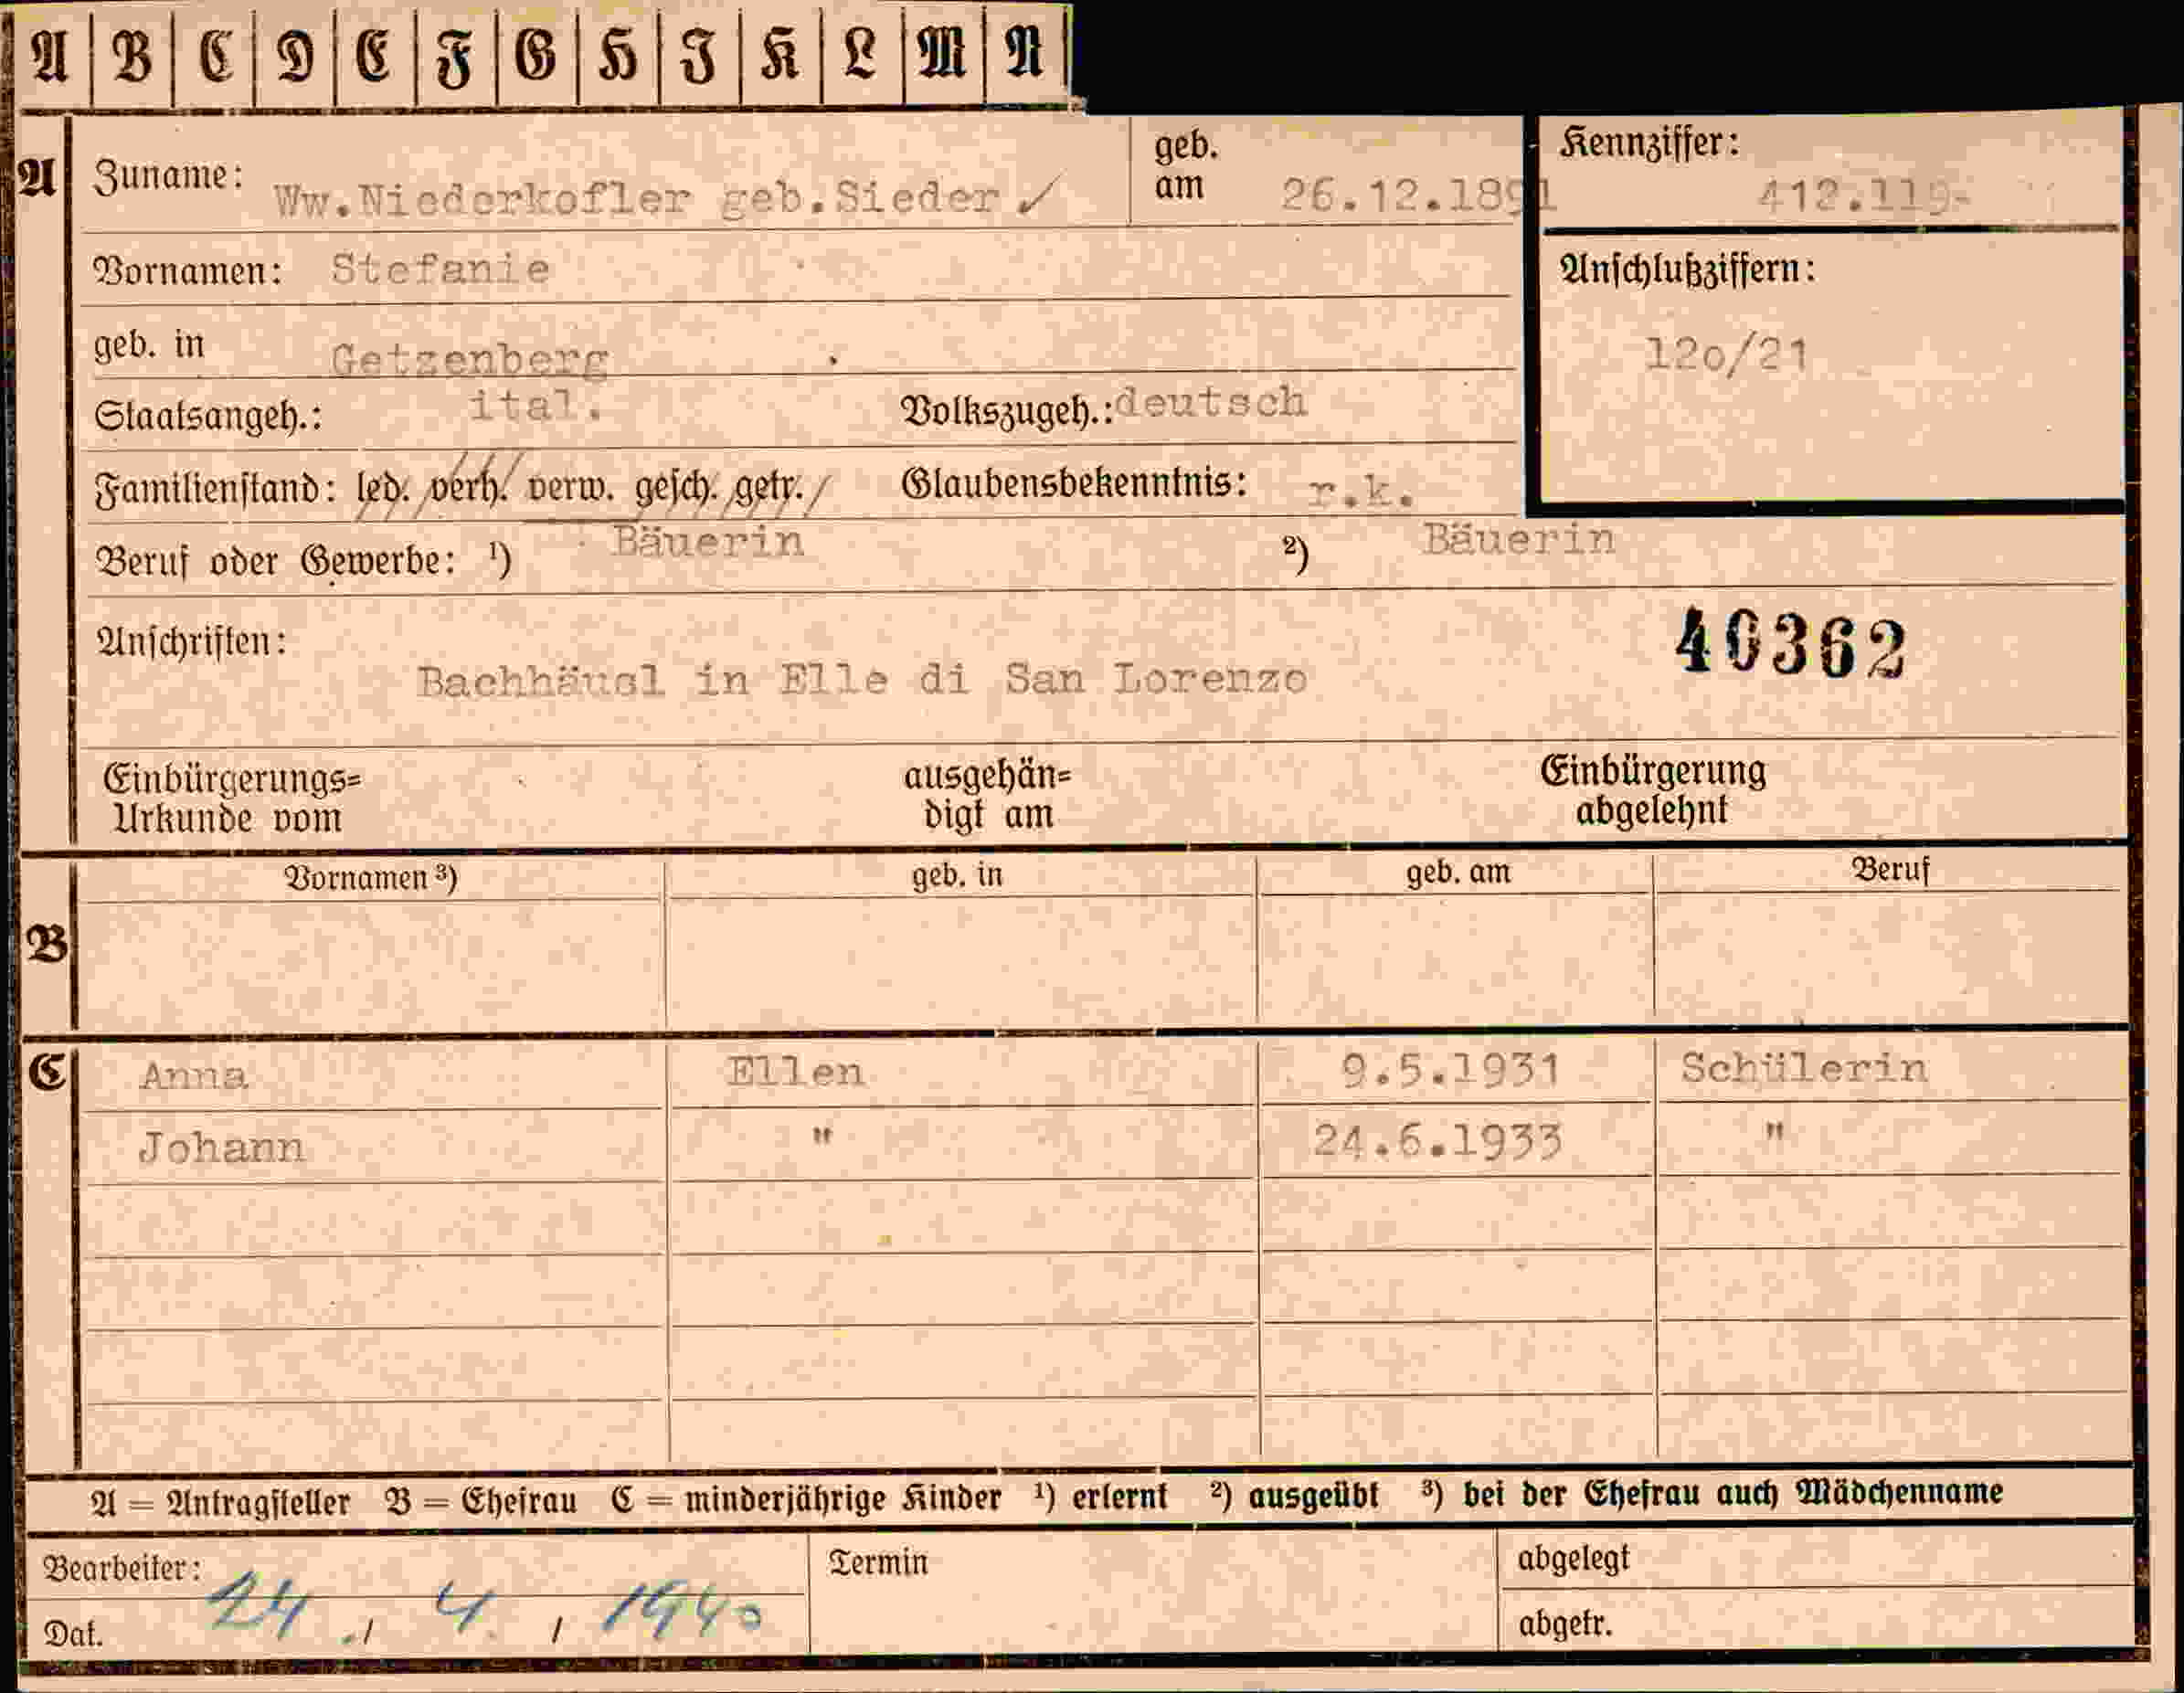 A B C D E F G H J K L M N
A Zuname: Ww.Niederkofler geb.Sieder ✓ geb. am 26.12.1891 Kennziffer: 412.119-
Vornamen: Stefanie Anschlußziffern:
geb. in Getzenberg 12o/21
Staatsangeh.: ital. Volkszugeh.: deutsch
Familienstand: led. verh. verw. gesch. getr. Glaubensbekenntnis: r.k.
Beruf oder Gewerbe: ¹) Bäuerin ²) Bäuerin
Anschriften: 40362
Bachhäusl in Elle di San Lorenzo
Einbürgerungs= ausgehän= Einbürgerung
Urkunde vom digt am abgelehnt
Vornamen ³) geb. in geb. am Beruf
B
C Anna Ellen 9.5.1931 Schülerin
Johann " 24.6.1933 "
A = Antragsteller B = Ehefrau C = minderjährige Kinder ¹) erlernt ²) ausgeübt ³) bei der Ehefrau auch Mädchenname
Bearbeiter: Termin abgelegt
Dat. 24. 4. 1940 abgetr.